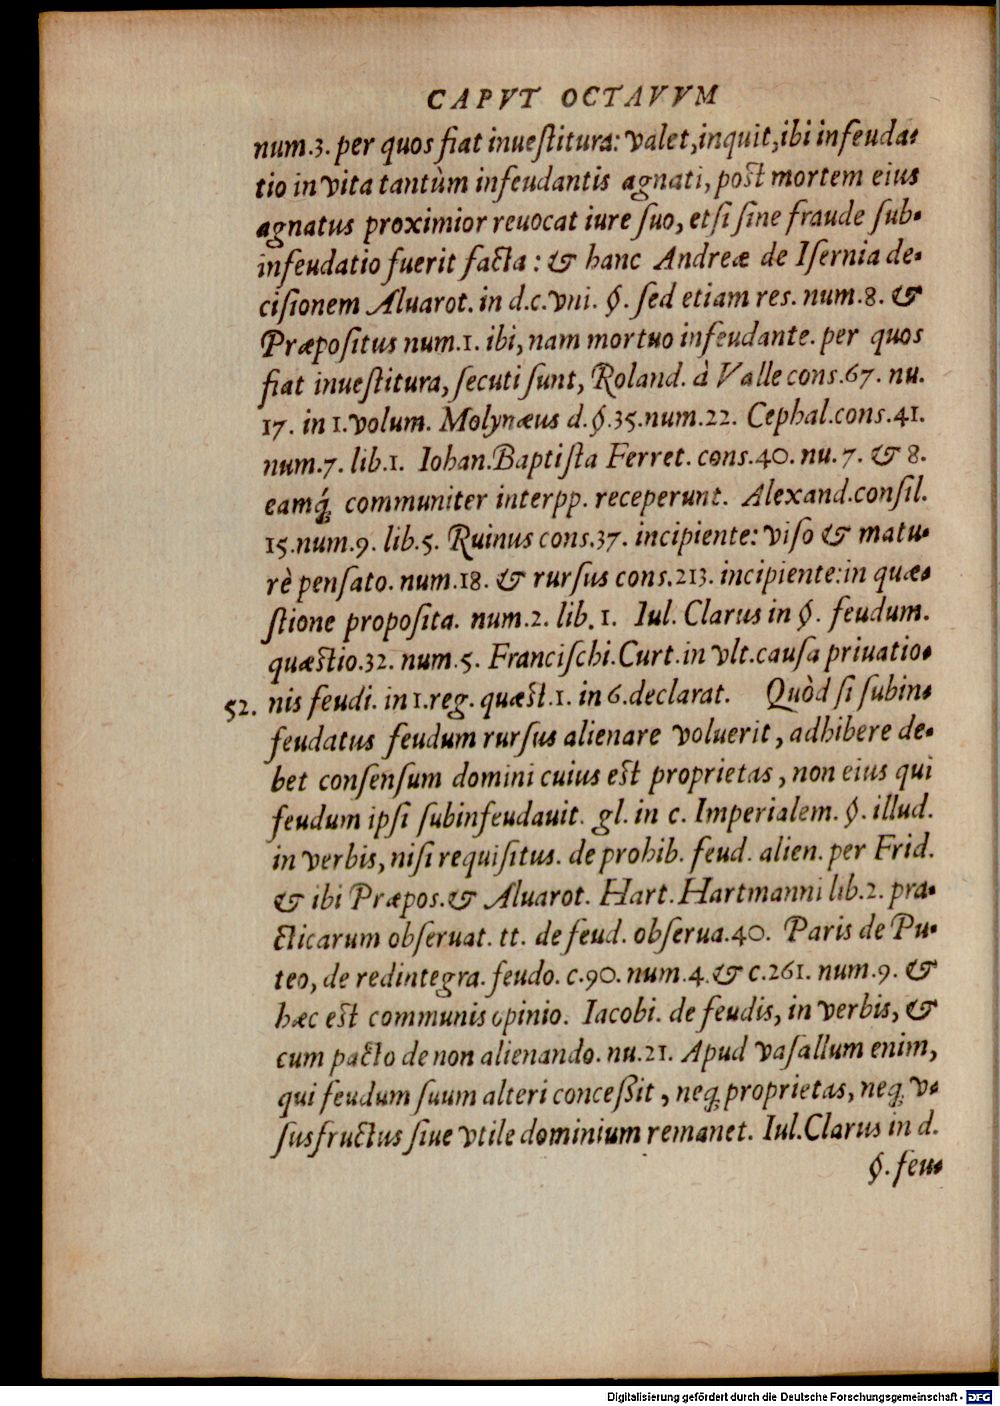 CAPVT OCTAVVM
num.3. per quos fiat inueſtitura: valet, inquit, ibi infeuda-
tio in vita tantùm infeudantis agnati, post mortem eius
agnatus proximior reuocat iure ſuo, etſi ſine fraude ſub-
infeudatio fuerit facta: & hanc Andreæ de Iſernia de-
ciſionem Aluarot. in d.c.vni. §. ſed etiam res. num.8. &
Præpoſitus num.1. ibi, nam mortuo infeudante. per quos
fiat inueſtitura, ſecuti ſunt, Roland. à Valle cons.67. nu.
17. in 1.volum. Molynæus d.§.35.num.22. Cephal.cons.41.
num.7. lib.1. Iohan.Baptiſta Ferret. cons.40. nu.7. & 8.
eamq́; communiter interpp. receperunt. Alexand.conſil.
15.num.9. lib.5. Ruinus cons.37. incipiente: viſo & matu-
rè penſato. num.18. & rurſus cons.213. incipiente: in quæ-
ſtione propoſita. num.2. lib. 1. Iul. Clarus in §. feudum.
quæstio.32. num.5. Franciſchi.Curt. in vlt.cauſa priuatio-
52. nis feudi. in 1.reg. quæst.1. in 6.declarat. Quòd ſi ſubin-
feudatus feudum rurſus alienare voluerit, adhibere de-
bet conſenſum domini cuius est proprietas, non eius qui
feudum ipſi ſubinfeudauit. gl. in c. Imperialem. §. illud.
in verbis, niſi requiſitus. de prohib. feud. alien. per Frid.
& ibi Præpos.& Aluarot. Hart. Hartmanni lib.2. pra-
cticarum obſeruat. tt. de feud. obſerua.40. Paris de Pu-
teo, de redintegra. feudo. c.90. num.4. & c.261. num.9. &
hæc est communis opinio. Iacobi. de feudis, in verbis, &
cum pacto de non alienando. nu.21. Apud vaſallum enim,
qui feudum ſuum alteri conceßit, neq; proprietas, neq; v-
ſusfructus ſiue vtile dominium remanet. Iul.Clarus in d.
§. feu-
Digitalisierung gefördert durch die Deutsche Forschungsgemeinschaft - DFG